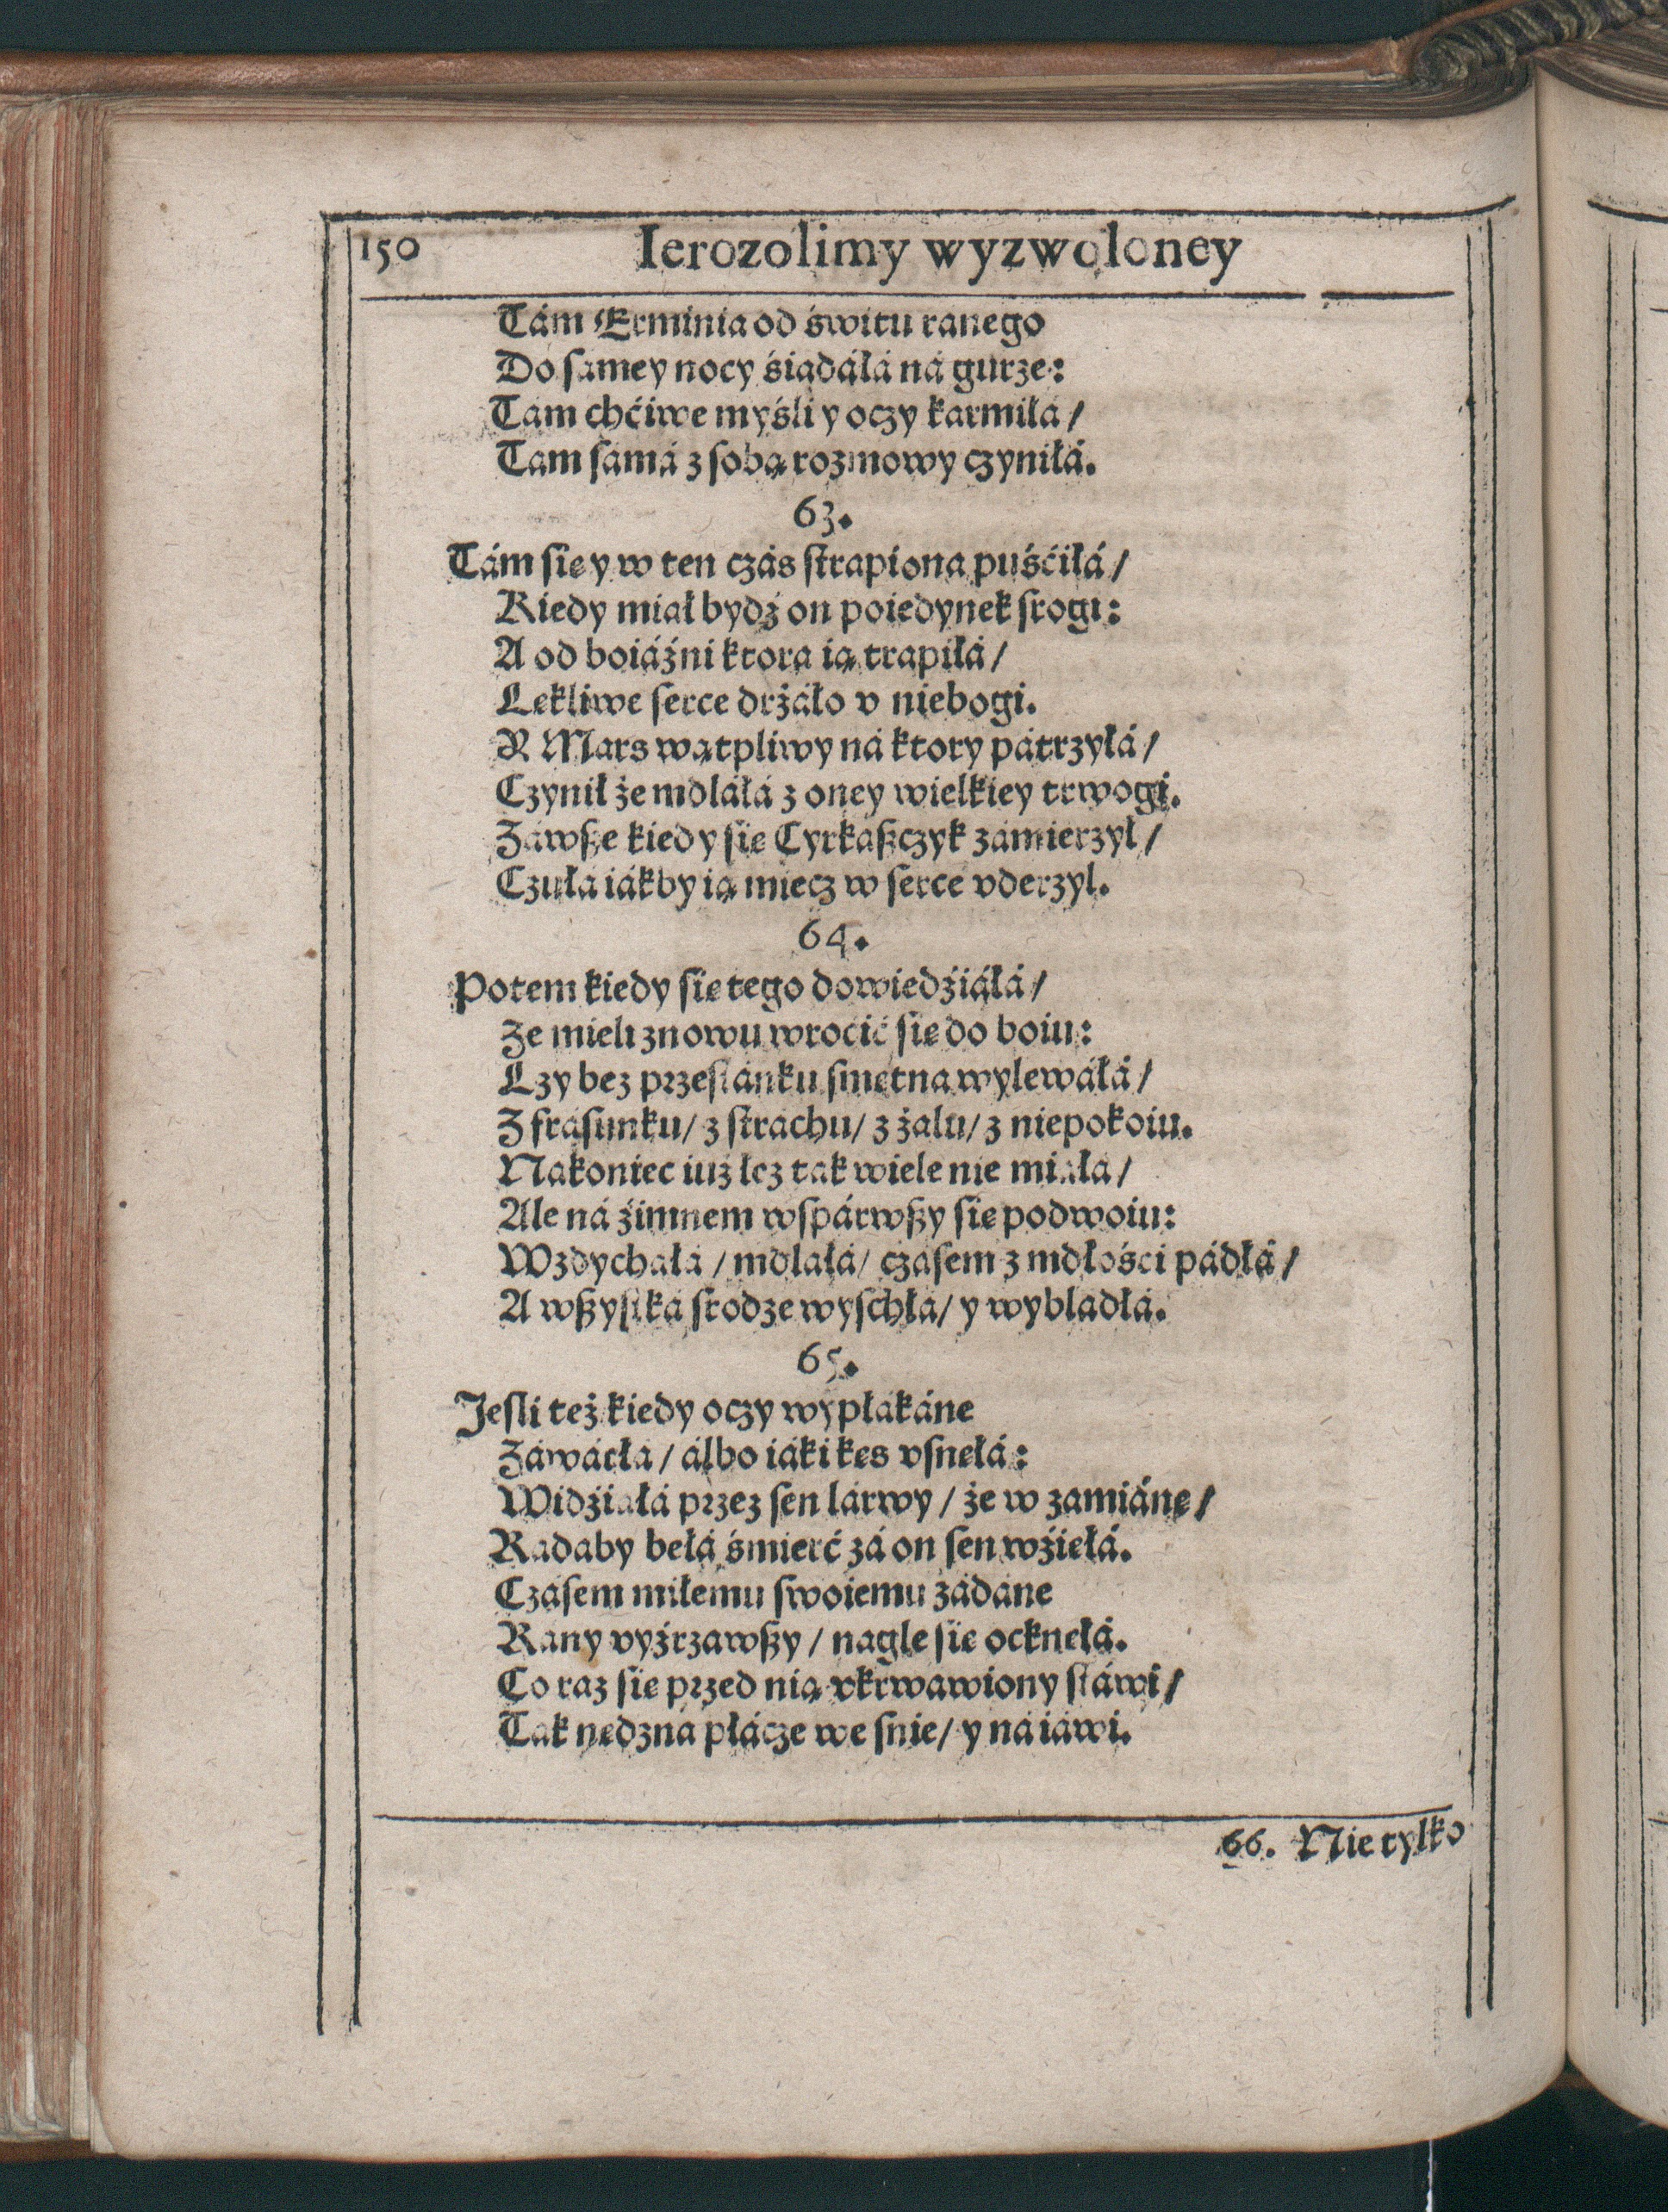 150 Ierozolimy wyzwoloney
Tám Erminia od świtu ranego
Do sámey nocy śiadáłá ná gurze:
Tám chćiwe myśli y oczy karmiłá/
Tam sámá z sobą rozmowy czyniłá.
63.
Tám sie y w ten czás strapiona puśćiłá/
Kiedy miał bydź on poiedynek srogi:
A od boiáźni ktora ią trapiłá/
Lękliwe serce drżáło v niebogi.
A Mars wątpliwy ná ktory pátrzyłá/
Czynił że mdláłá z oney wielkiey trwogi.
Záwsze kiedy sie Cyrkaszczyk zámierzył/
Czułá iákby ią miecz w serce vderzył.
64.
Potem kiedy sie tego dowiedźiáłá/
Ze mieli znowu wroćić sie do boiu:
Łzy bez przestánku smętna wylewáłá/
Z frásunku/ z stráchu/ z żalu/ z niepokoiu.
Nakoniec iuż łez tak wiele nie miáłá/
Ale ná źimnem wspárwszy sie podwoiu:
Wzdycháłá/ mdlałá/ czásem z mdłośći pádłá/
A wszystká srodze wyschłá/ y wybladłá.
65.
Jesli też kiedy oczy wypłakáne
Záwárłá/ álbo iáki kes vsnełá:
Widźiałá przez sen lárwy/ że w zamiánę/
Radaby bełá śmierć zá on sen wźiełá.
Czásem miłemu swoiemu żádáne
Rany vyźrzawszy/ nagle sie ocknełá.
Co raz sie przed nią vkrwawiony stáwi/
Tak nędzna płácze we snie/ y ná iáwi.
66. Nie tylko